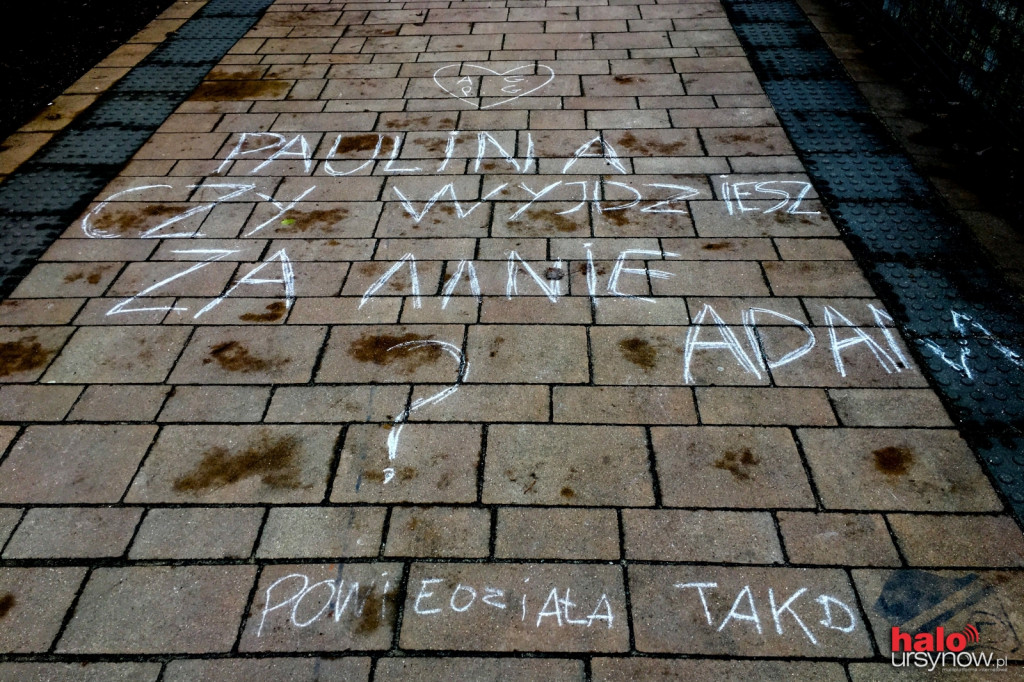 PAULINA
CZY WYJDZIESZ
ZA MNIE
ADAM
?
POWiEDziAŁA TAK
halo
URSYNOW.pl